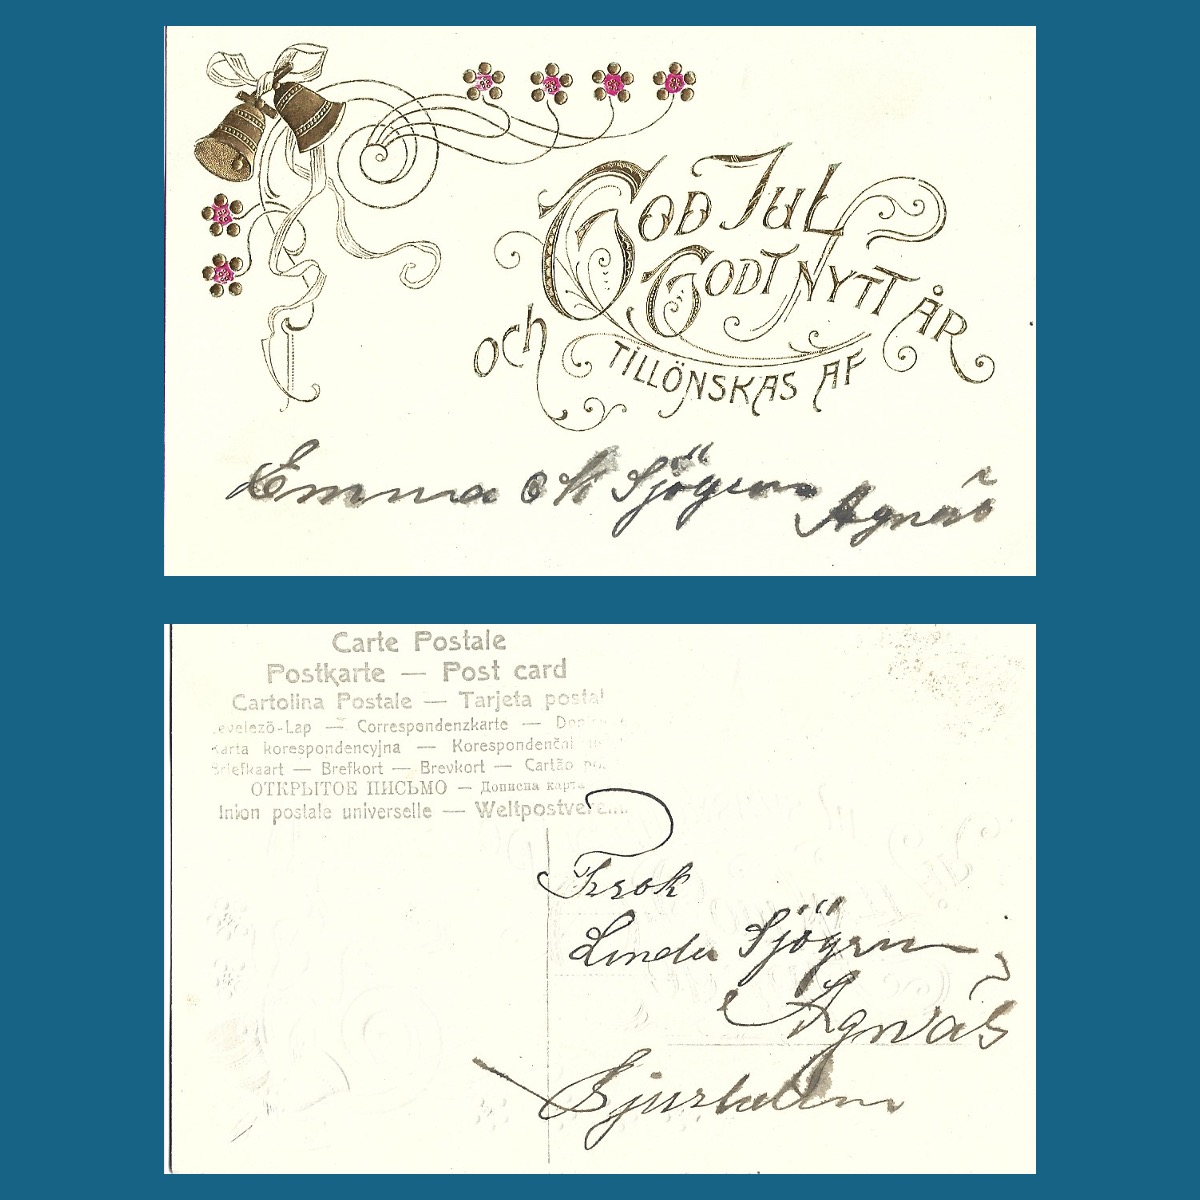 GOD JUL
GODT NYTT ÅR
OCH TILLÖNSKAS AF
Emma Sjögren Agnäs
Carte Postale
Postkarte — Post card
Cartolina Postale — Tarjeta postal
Levelező-Lap — Correspondenzkarte —
Karta korespondencyjna — Korespondenční
Briefkaart — Brefkort — Brevkort — Cartão
ОТКРЫТОЕ ПИСЬМО — Дописна карта
Union postale universelle — Weltpostverein
Frok
Linda Sjögren
Agnäs
Bjurholm